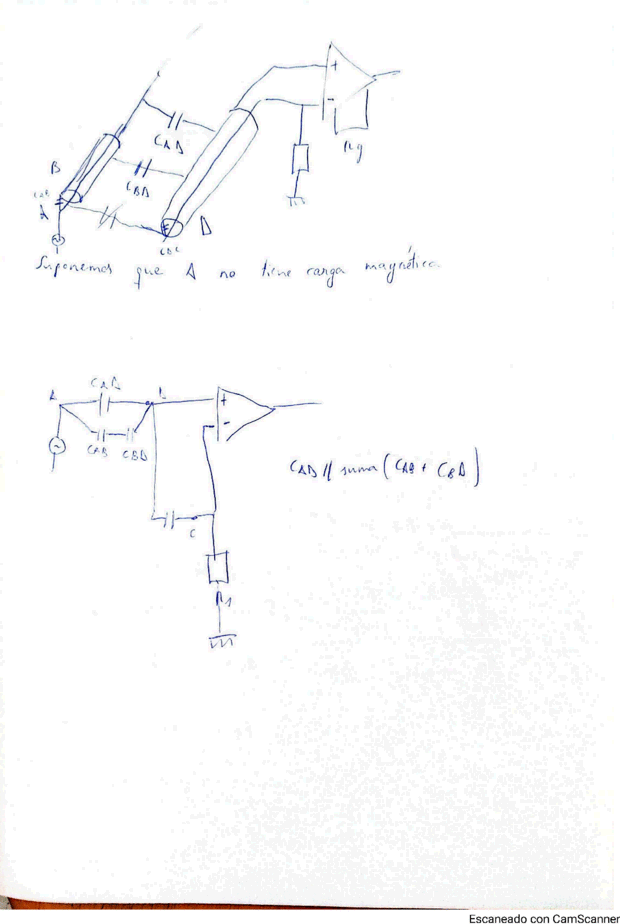 +
CAD
-
B
CBD
Rg
CAB
A
D
CDC
Suponemos que A no tiene carga magnética.
CAD
A
+
-
CAB CBD
CAD // suma (CAB + CBD)
C
R1
Escaneado con CamScanner